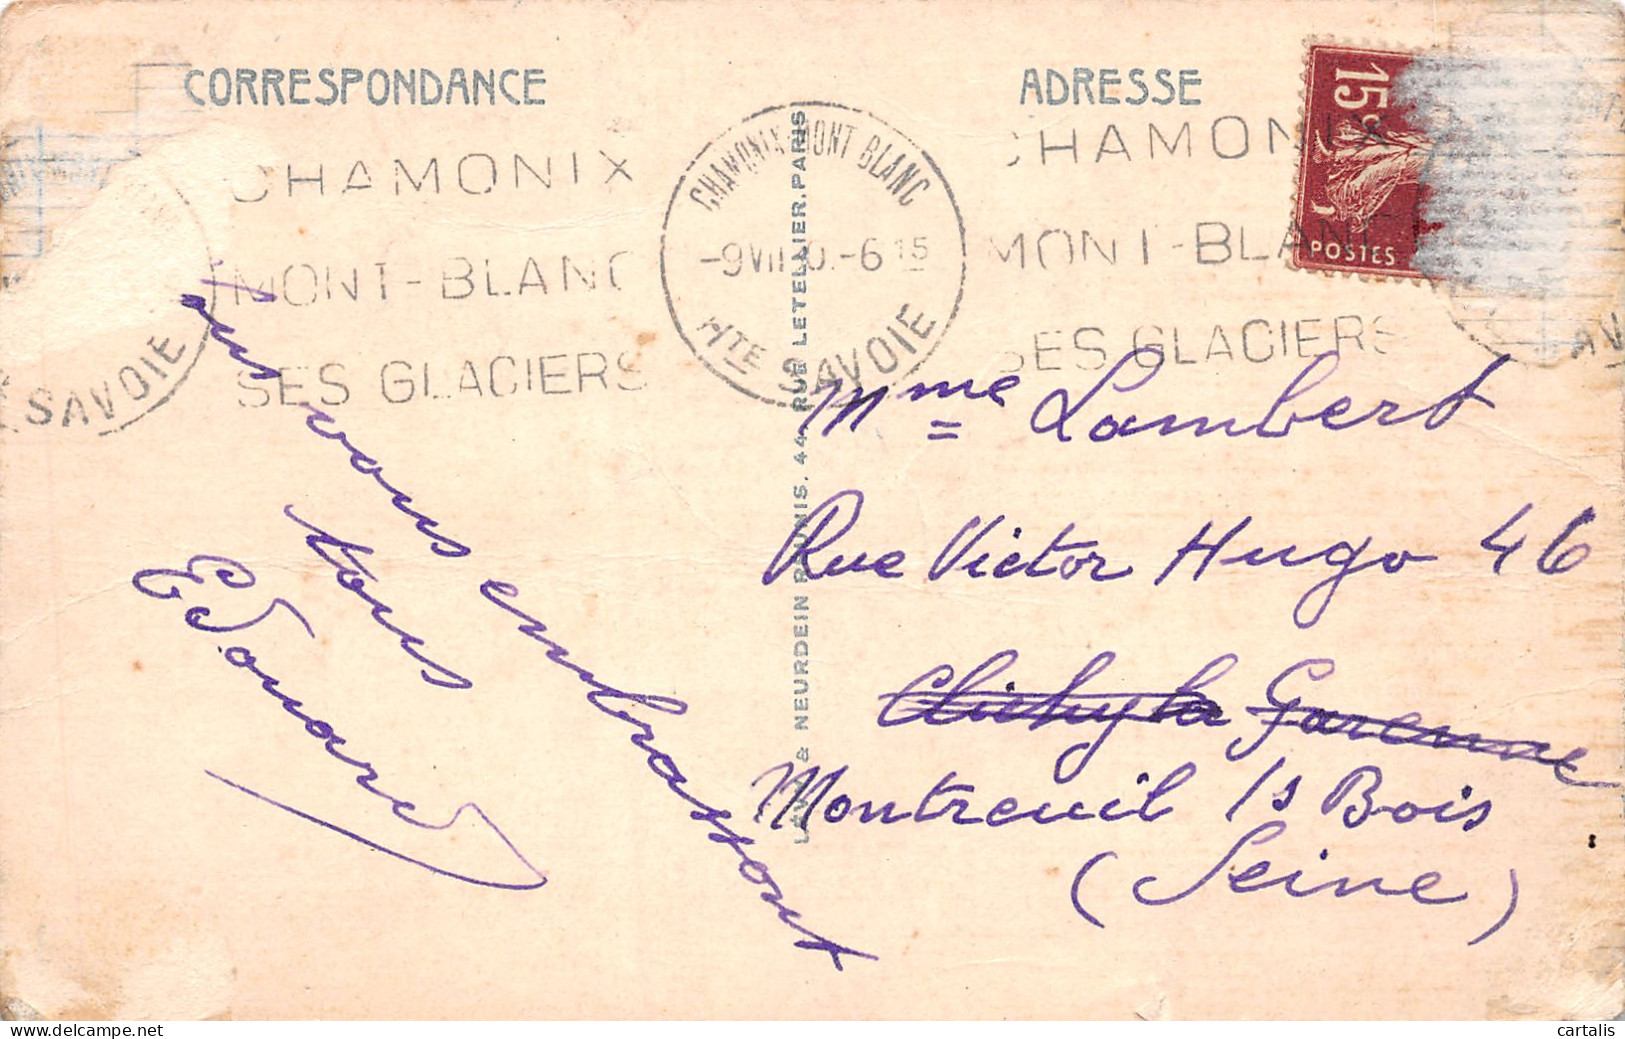 CORRESPONDANCE
ADRESSE
CHAMONIX
MONT-BLANC
SES GLACIERS
CHAMONIX MONT BLANC
HTE SAVOIE
CHAMONIX
MONT-BLANC
SES GLACIERS
SAVOIE
15c
POSTES
vous embrassont
tous
Edouard
Mme Lambert
Rue Victor Hugo 46
Clichy la Garenne
Montreuil /s Bois
(Seine)
& NEURDEIN RÉUNIS. 44, RUE LETELLIER, PARIS
delcampe.net
cartalis